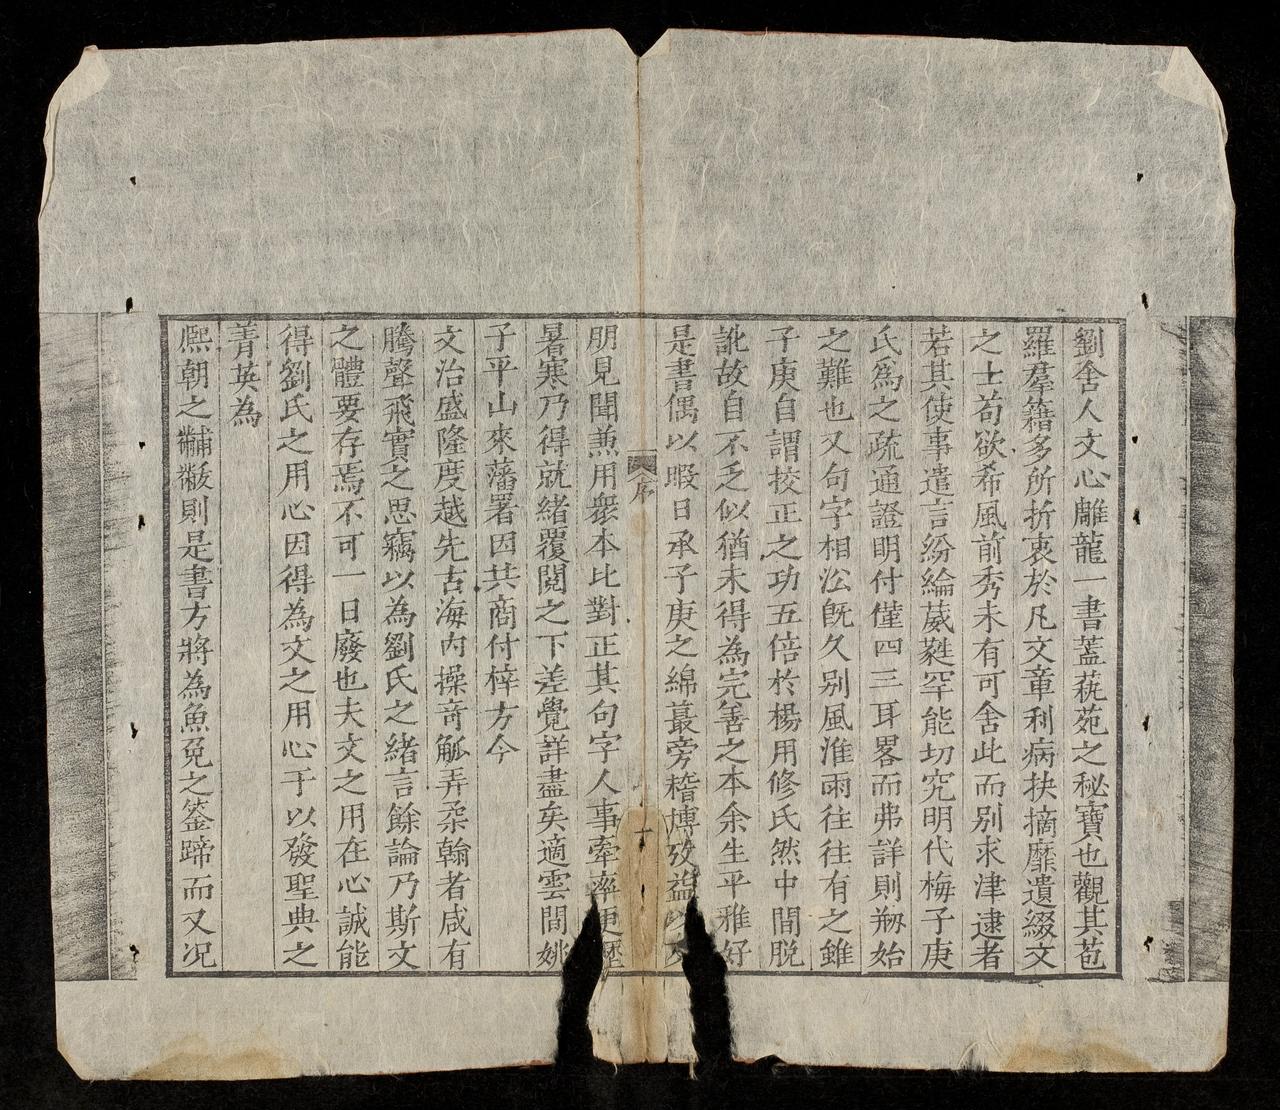 劉舍人文心雕龍一書蓋蓺苑之秘寶也觀其苞
羅羣籍多所折衷於凡文章利病抉摘靡遺綴文
之士苟欲希風前秀未有可舍此而別求津逮者
若其使事遣言紛綸葳蕤罕能切究明代梅子庚
氏爲之疏通證明什僅四三耳畧而弗詳則剏始
之難也又句字相沿旣久別風淮雨往往有之雖
子庚自謂挍正之功五倍於楊用修氏然中間脫
訛故自不乏似猶未得為完善之本余生平雅好
是書偶以暇日承子庚之綿蕞旁稽博攷益以
序
一
朋見聞兼用衆本比對正其句字人事牽率更歷
暑寒乃得就緒覆閱之下差覺詳盡矣適雲間姚
子平山來藩署因共商付梓方今
文治盛隆度越先古海內操奇觚弄柔翰者咸有
騰聲飛實之思竊以為劉氏之緒言餘論乃斯文
之體要存焉不可一日廢也夫文之用在心誠能
得劉氏之用心因得為文之用心于以發聖典之
菁英為
熙朝之黼黻則是書方將為魚兔之筌蹄而又况